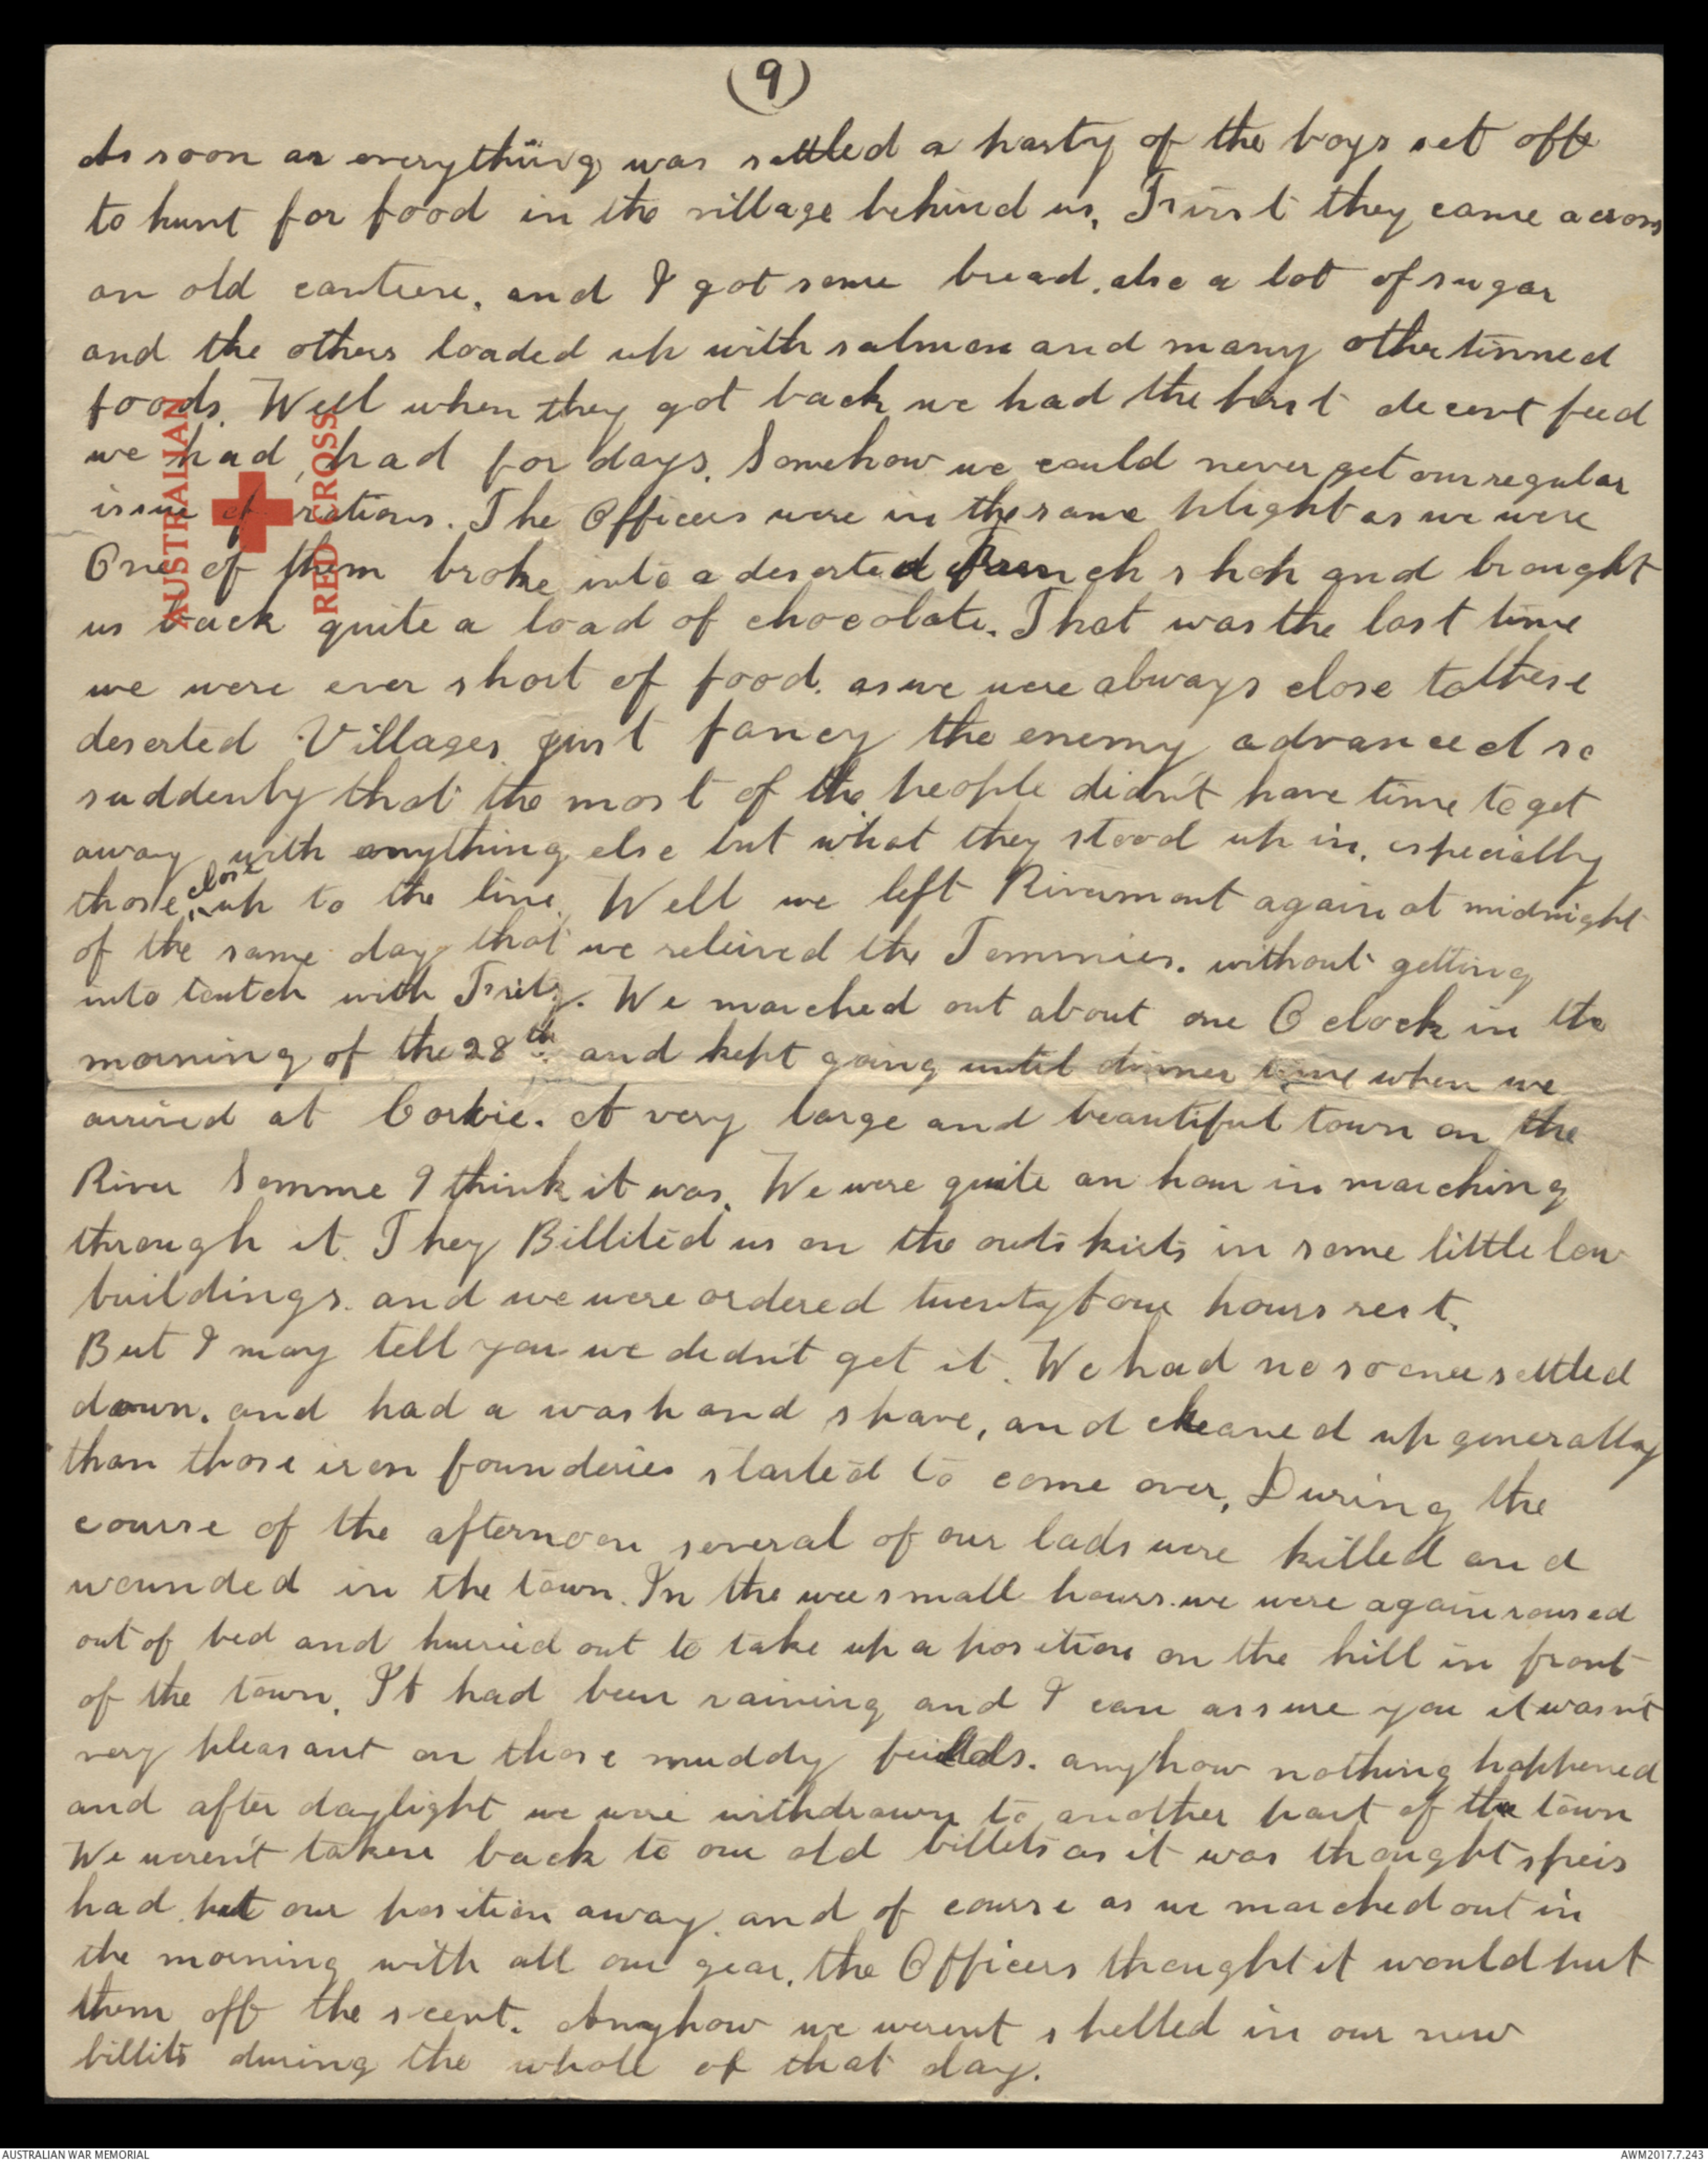 (9)
As soon as everything was settled a party of the boys set off
to hunt for food in the village behind us, First they came across
an old canteen, and I got some bread, also a lot of sugar
and the others loaded up with salmon and many other tinned
foods. Well when they got back we had the first decent feed
we had, had for days. Somehow we could never get our regular
issue of rations. The Officers were in the same plight as we were
One of them broke into a deserted French shop and brought
us back quite a load of chocolate. That was the last time
we were ever short of food. as we were always close to these
deserted Villages just fancy the enemy advanced so
suddenly that the most of the people didn't have time to get
away with anything else but what they stood up in, especially
those close up to the line. Well we left Rivermont again at midnight
of the same day that we releived the Tommies. without getting
into toutch with Fritz. We marched out about one O clock in the
morning of the 28th. and kept going until dinner time when we
arrived at Corbie. A very large and beautiful town on the
River Somme I think it was. We were quite an hour in marching
through it. They Billited us on the outskirts in some little low
buildings. and we were ordered twentyfour hours rest.
But I may tell you we didn't get it. We had no sooner settled
down. and had a wash and shave, and cleaned up generally
than those iron founderies started to come over, During the
course of the afternoon several of our lads were killed and
wounded in the town. In the wee small hours we were again roused
out of bed and hurried out to take up a position on the hill in front
of the town. It had been raining and I can assure you it wasn't
very pleasant on those muddy feilds. anyhow nothing happened
and after daylight we were withdrawn to another part of the town
We weren't taken back to our old billets as it was thought speis
had put our position away. and of course as we marched out in
the morning with all our gear, the Officers thought it would put
them off the scent. Anyhow we werent shelled in our new
billits during the whole of that day.
AUSTRALIAN
RED CROSS
AUSTRALIAN WAR MEMORIAL
AWM2017.7.243